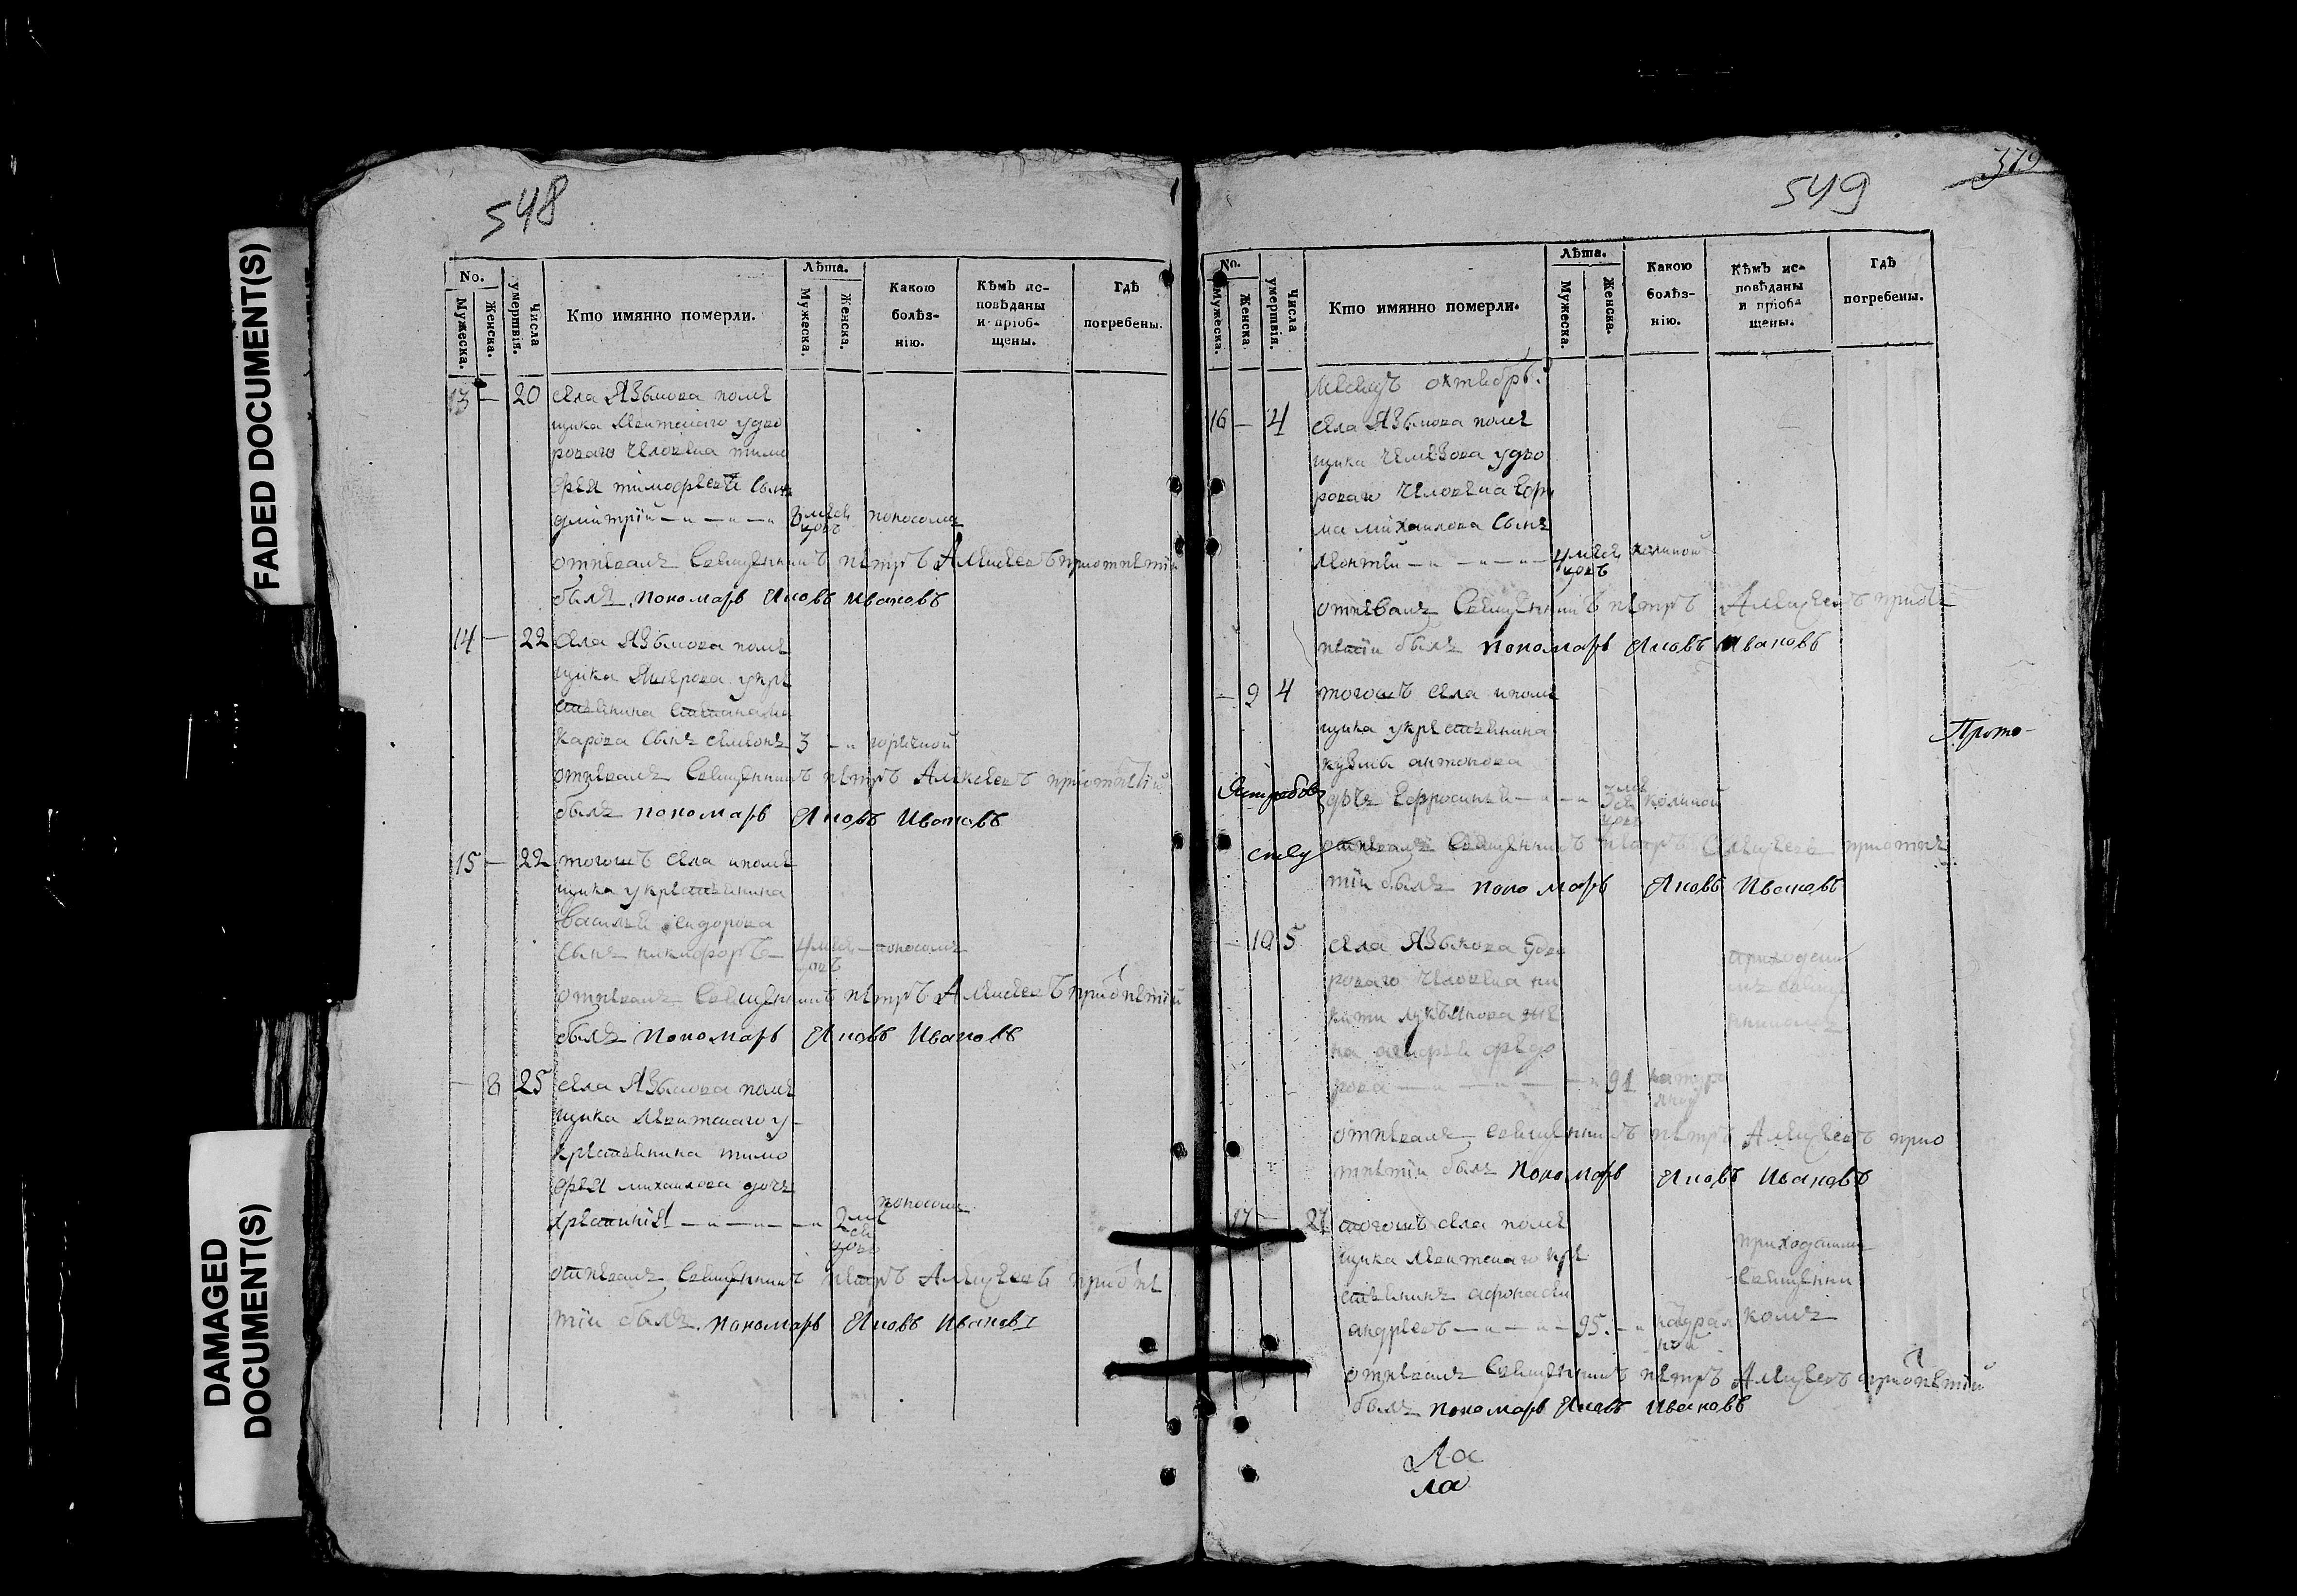 FADED DOCUMENT(S)
DAMAGED DOCUMENT(S)
548
No.
Мужеска.
Женска.
Числа умертвія.
Кто имянно померли.
Лѣта.
Мужеска.
Женска.
Какою болѣз-
нію.
Кѣмъ ис-
повѣданы
и пріоб-
щены.
Гдѣ
погребены.
13 — 20 села Языкова поме
щика
роваго человека тимо
фея тимофеева сынъ
дмитрій — и — и — и месецовъ поносомъ
отпевалъ священникъ петръ Алексеевъ приотпетіи
былъ пономарь Яковъ Ивановъ
14 — 22 села Языкова поме
щика укре
стьянина степана ма
карова сынъ семионъ 3 — и горячкой
отпевалъ священникъ петръ Алексеевъ приотпетіи
былъ пономарь Яковъ Ивановъ
15 — 22 тогожъ села ипоме
щика укрестьянина
василья сидорова
сынъ никифоръ — 4 месецовъ — поносомъ
отпевалъ священникъ петръ Алексеевъ приотпетіи
былъ пономарь Яковъ Ивановъ
— 8 25 села Языкова поме
щика у
крестьянина тимо
фея михаилова дочь
— и — и — и 2 месецовъ поносомъ
отпевалъ священникъ петръ Алексеевъ приотпе
тіи былъ пономарь Яковъ Ивановъ
379
549
No.
Мужеска.
Женска.
Числа умертвія.
Кто имянно померли.
Лѣта.
Мужеска.
Женска.
Какою
болѣз-
нію.
Кѣмъ ис-
повѣданы
и пріоб-
щены.
Гдѣ
погребены.
Месецъ октябрь.
16 — 4 села Языкова поме
щика удво
роваго человека
ма михаилова сынъ
леонтей — и — и — и 4 месецовъ
отпевалъ священникъ петръ Алексеевъ приот
петіи былъ пономарь Яковъ Ивановъ
— 9 4 тогожъ села ипоме
щика укрестьянина
кузмы антонова
дочь ефросинья — и — и 3 месецовъ
отпевалъ священникъ петръ Алексеевъ приотпе
тіи былъ пономарь Яковъ Ивановъ
Прото-
— 10 5 села Языкова удво
роваго человека ни
киты лукьянова же
на федо
рова — и — и — и 91
отпевалъ священникъ петръ Алексеевъ прио
тпетіи былъ пономарь Яковъ Ивановъ
17 — 27 тогожъ села поме
щика кре
стьянинъ афонасеи
андреевъ — и — и — 95. — и
приходскимъ
священни
комъ
отпевалъ священникъ петръ Алексеевъ приотпетіи
былъ пономарь Яковъ Ивановъ